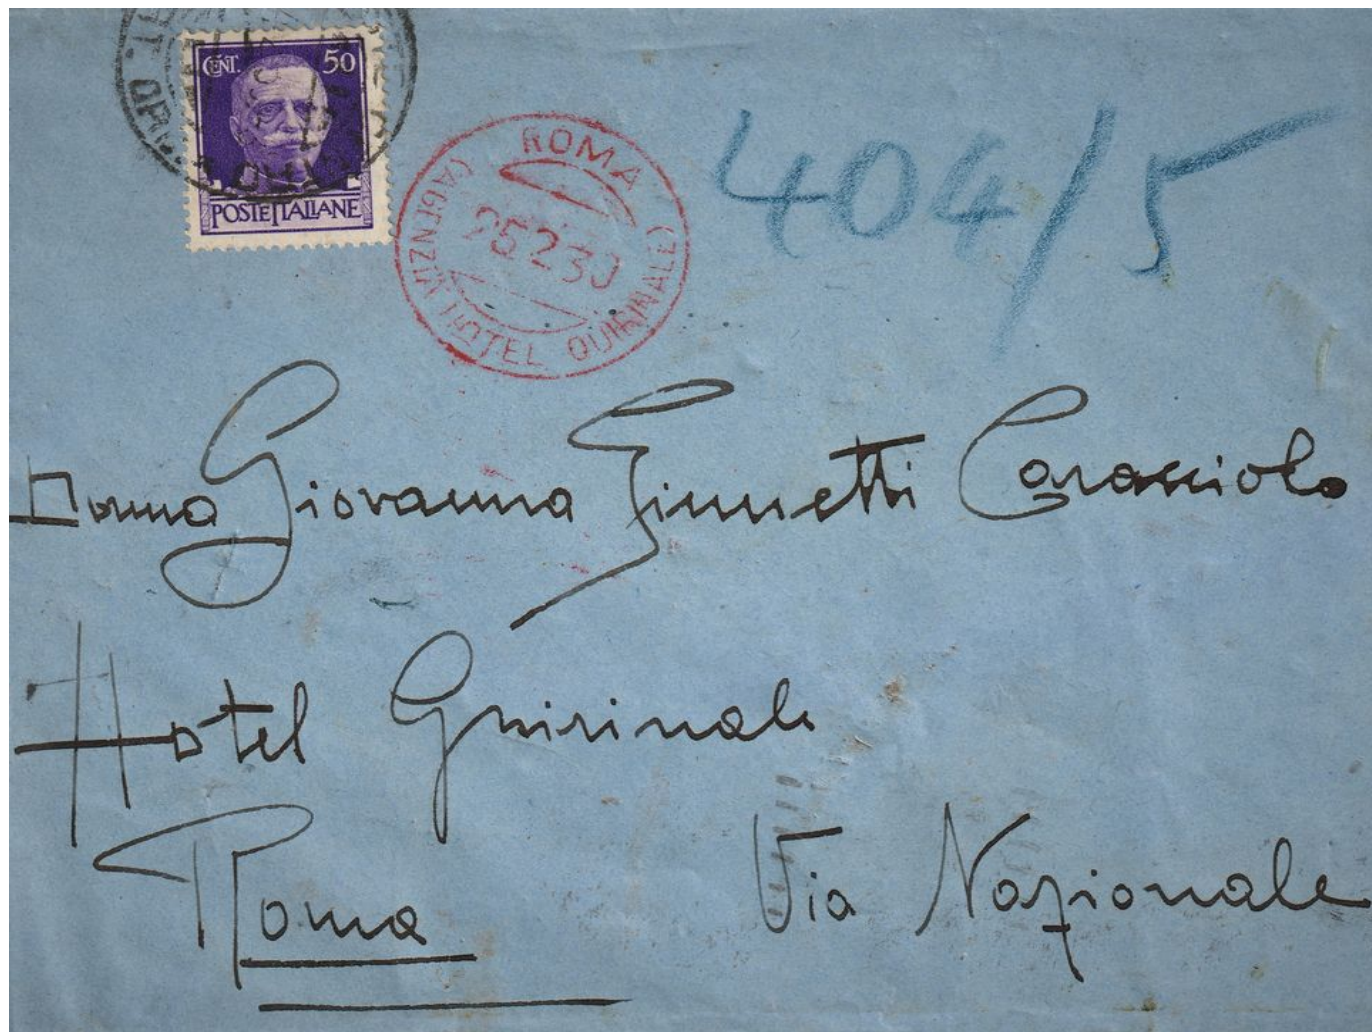 CENT. 50
POSTE ITALIANE
ROMA
25 2 30
(AGENZIA HOTEL QUIRINALE)
404/5
Donna Giovanna Zinnetti Caracciolo
Hotel Quirinale
Roma Via Nazionale